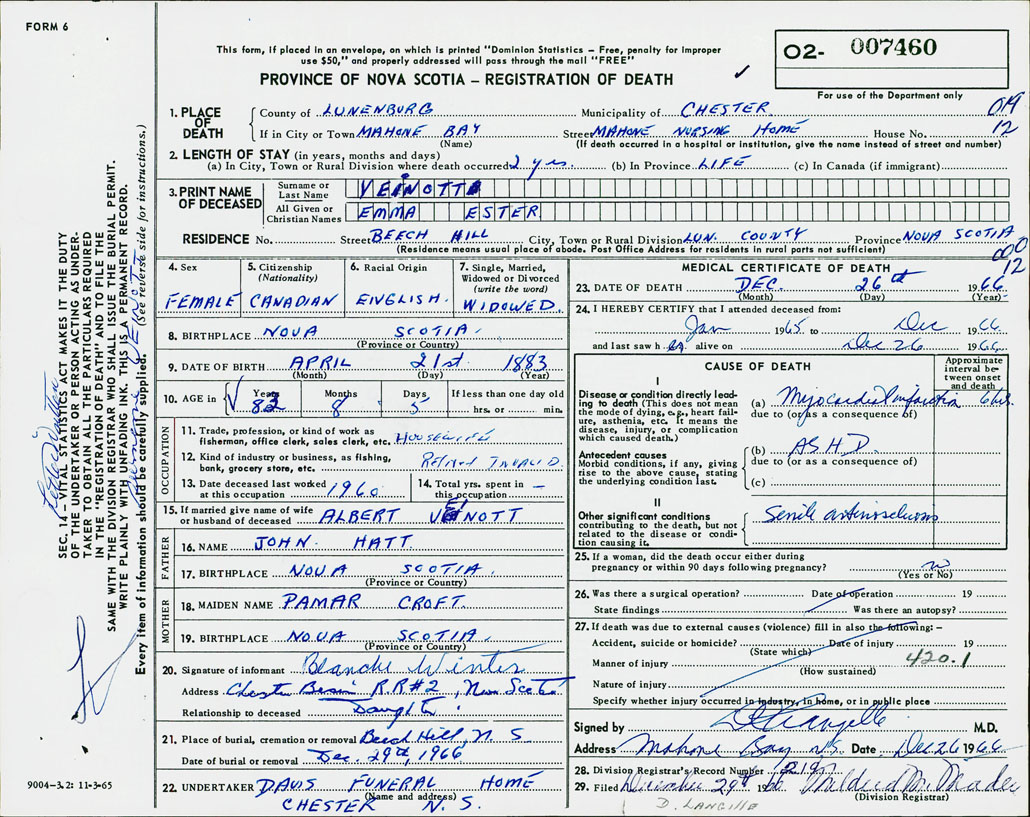 FORM 6
This form, if placed in an envelope, on which is printed "Dominion Statistics – Free, penalty for improper
use $50," and properly addressed will pass through the mail "FREE"
PROVINCE OF NOVA SCOTIA – REGISTRATION OF DEATH
O2- 007460
For use of the Department only
1. PLACE OF DEATH
County of LUNENBURG Municipality of CHESTER
If in City or Town MAHONE BAY Street MAHONE NURSING HOME House No.
(Name) (If death occurred in a hospital or institution, give the name instead of street and number)
12
2. LENGTH OF STAY (in years, months and days)
(a) In City, Town or Rural Division where death occurred 2 yrs. (b) In Province LIFE (c) In Canada (if immigrant)
3. PRINT NAME OF DECEASED
Surname or Last Name VEINOTT
All Given or Christian Names EMMA ESTER
RESIDENCE No. Street BEECH HILL City, Town or Rural Division LUN. COUNTY Province NOVA SCOTIA
(Residence means usual place of abode. Post Office Address for residents in rural parts not sufficient)
12
4. Sex FEMALE
5. Citizenship (Nationality) CANADIAN
6. Racial Origin ENGLISH.
7. Single, Married, Widowed or Divorced (write the word) WIDOWED
8. BIRTHPLACE NOVA SCOTIA.
(Province or Country)
9. DATE OF BIRTH APRIL 21st 1883
(Month) (Day) (Year)
10. AGE in Years 83 Months 8 Days 5 If less than one day old
hrs. or min.
OCCUPATION
11. Trade, profession, or kind of work as
fisherman, office clerk, sales clerk, etc. HOUSEWIFE
12. Kind of industry or business, as fishing,
bank, grocery store, etc. RETIRED INVALID
13. Date deceased last worked
at this occupation 1960
14. Total yrs. spent in
this occupation –
15. If married give name of wife
or husband of deceased ALBERT VEINOTT
FATHER
16. NAME JOHN HATT.
17. BIRTHPLACE NOVA SCOTIA.
(Province or Country)
MOTHER
18. MAIDEN NAME PAMAR CROFT.
19. BIRTHPLACE NOVA SCOTIA.
(Province or Country)
20. Signature of informant Blanche Winter
Address Chester Basin R.R#2, Nova Scotia
Relationship to deceased Daughter
21. Place of burial, cremation or removal Beech Hill, N. S.
Date of burial or removal Dec. 29th, 1966
22. UNDERTAKER DAVIS FUNERAL HOME
(Name and address)
CHESTER N. S.
MEDICAL CERTIFICATE OF DEATH
23. DATE OF DEATH DEC. 26th 1966
(Month) (Day) (Year)
24. I HEREBY CERTIFY that I attended deceased from:
Jan 1965 to Dec 1966
and last saw her alive on Dec 26 1966
CAUSE OF DEATH
Approximate interval between onset and death
I
Disease or condition directly leading to death (This does not mean the mode of dying, e.g., heart failure, asthenia, etc. It means the disease, injury, or complication which caused death.)
(a) Myocardial infarction 6 hrs.
due to (or as a consequence of)
Antecedent causes
Morbid conditions, if any, giving rise to the above cause, stating the underlying condition last.
(b) A.S.H.D.
due to (or as a consequence of)
(c)
II
Other significant conditions
contributing to the death, but not related to the disease or condition causing it.
Senile arteriosclerosis
25. If a woman, did the death occur either during
pregnancy or within 90 days following pregnancy? no
(Yes or No)
26. Was there a surgical operation? Date of operation 19
State findings Was there an autopsy?
27. If death was due to external causes (violence) fill in also the following: –
Accident, suicide or homicide? Date of injury 19
(State which)
Manner of injury 420.1
(How sustained)
Nature of injury
Specify whether injury occurred in industry, in home, or in public place
Signed by M.D.
Address Mahone Bay N.S. Date Dec 26 1966
28. Division Registrar's Record Number 219
29. Filed December 29th 1966 Mildred M. Meader
(Division Registrar)
D. LANGILLE
SEC. 14 – VITAL STATISTICS ACT MAKES IT THE DUTY
OF THE UNDERTAKER OR PERSON ACTING AS UNDER-
TAKER TO OBTAIN ALL THE PARTICULARS REQUIRED
IN THE "REGISTRATION OF DEATH" AND TO FILE THE
SAME WITH THE DIVISION REGISTRAR WHO SHALL ISSUE THE BURIAL PERMIT.
WRITE PLAINLY WITH UNFADING INK. THIS IS A PERMANENT RECORD.
Every item of information should be carefully supplied. (See reverse side for instructions.)
9004-3.2: 11-3-65